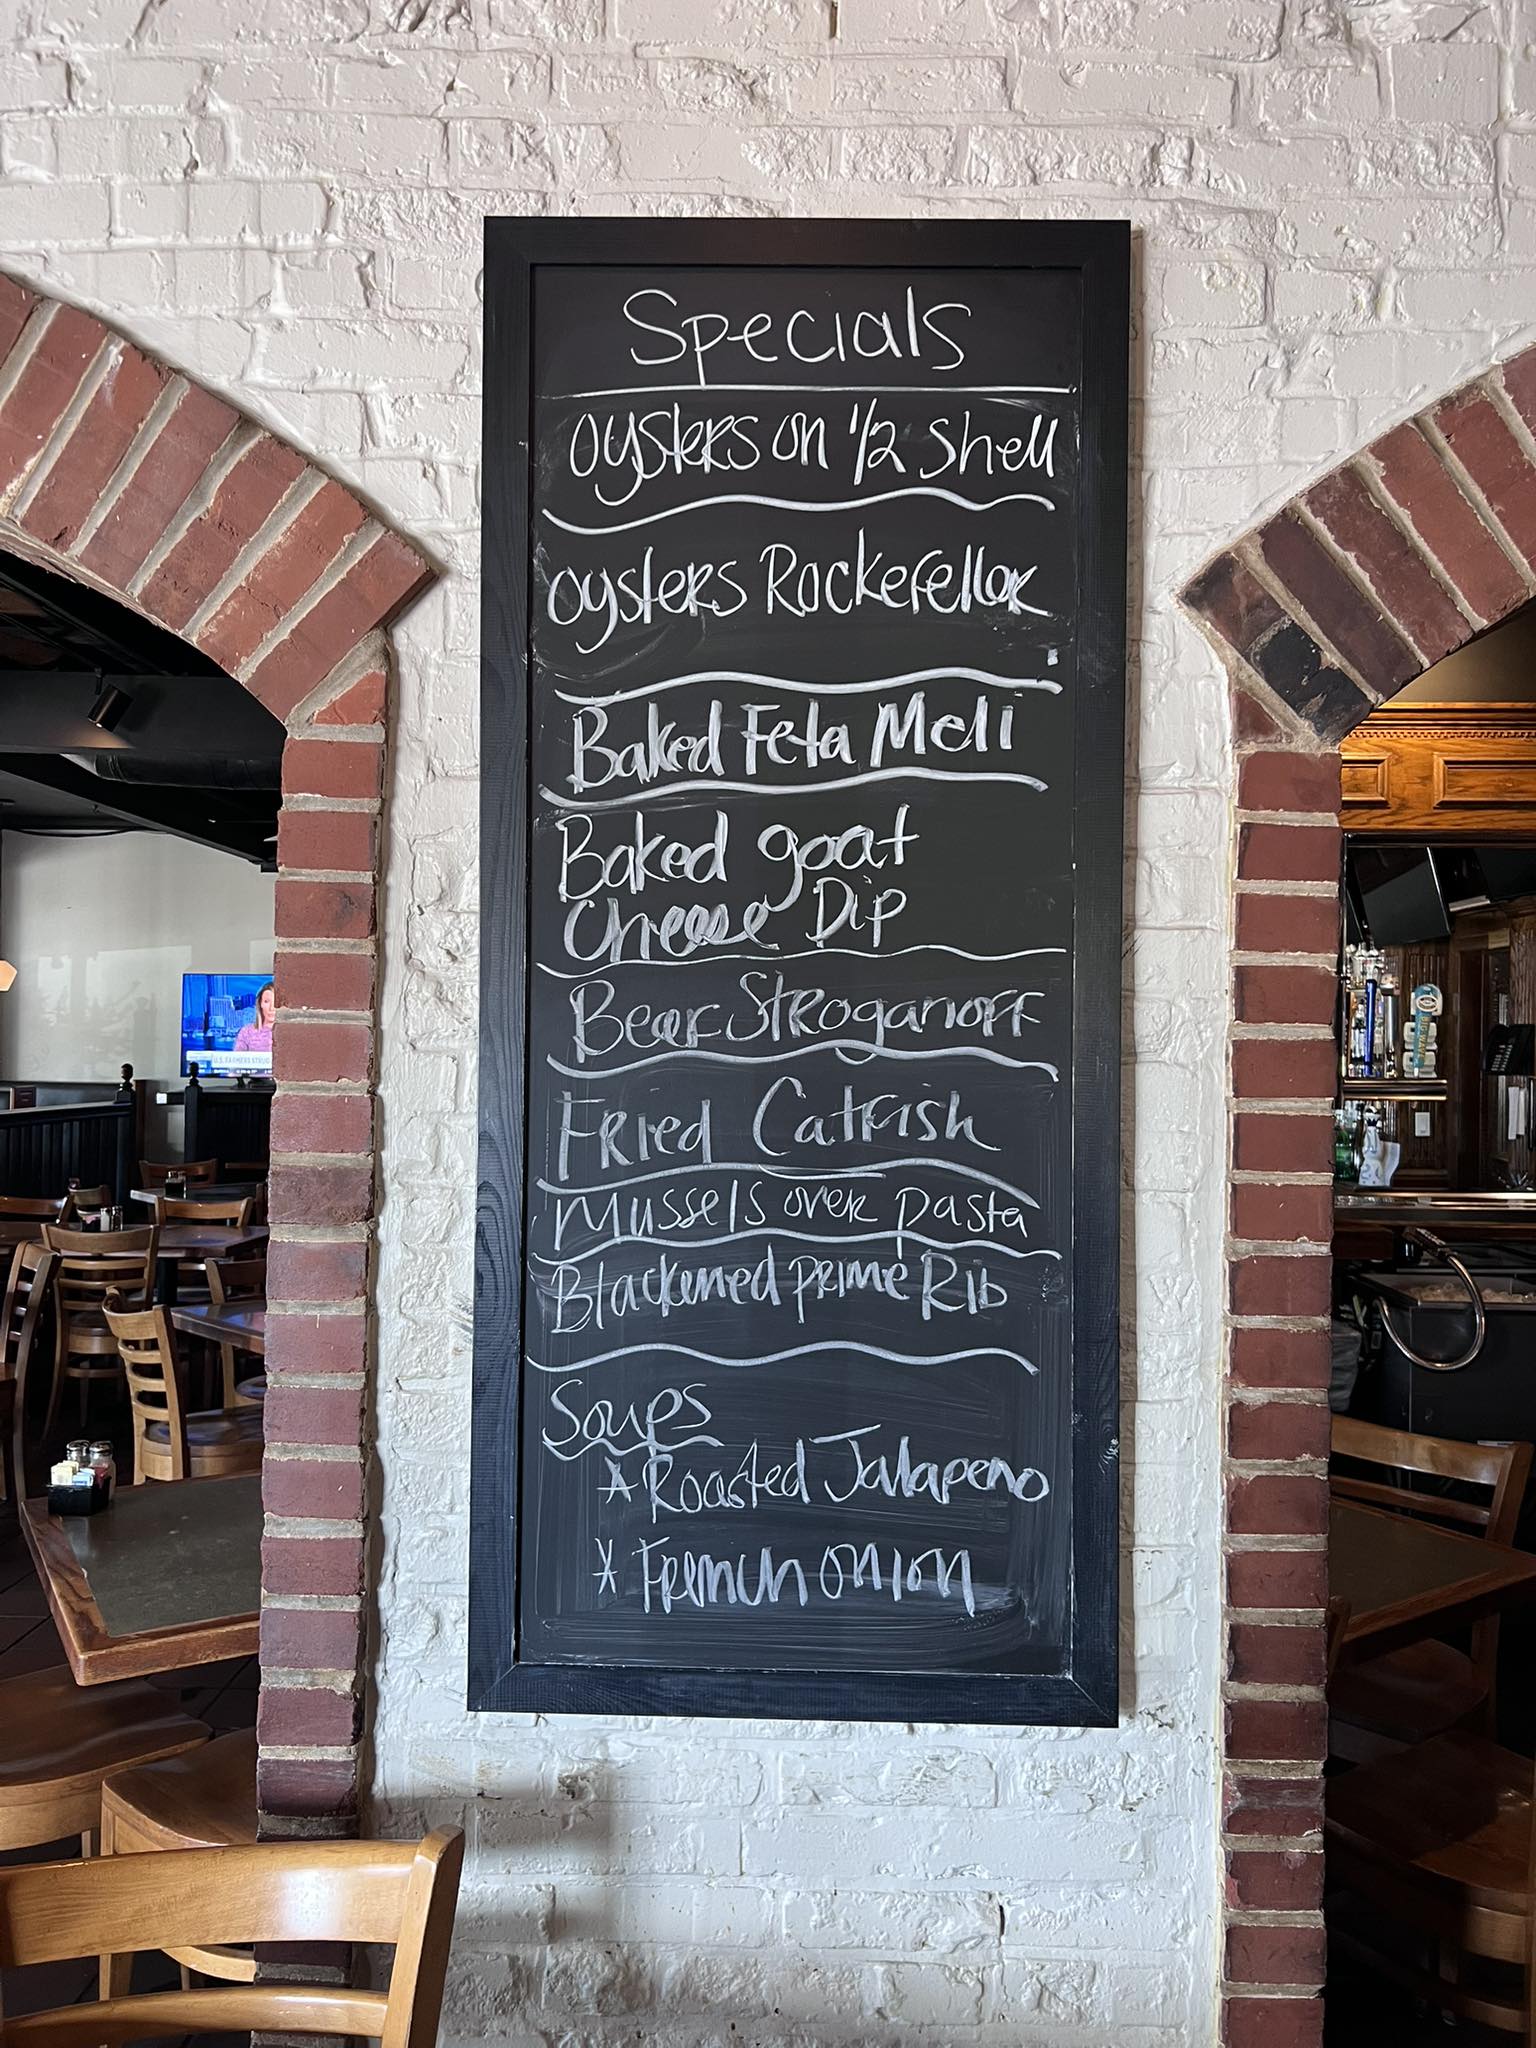 Specials
Oysters on 1/2 shell
Oysters Rockefeller
Baked Feta Meli
Baked goat
Cheese Dip
Beef Stroganoff
Fried Catfish
Mussels over pasta
Blackened prime Rib
Soups
* Roasted Jalapeno
* French onion
U.S. FARMERS STRUG